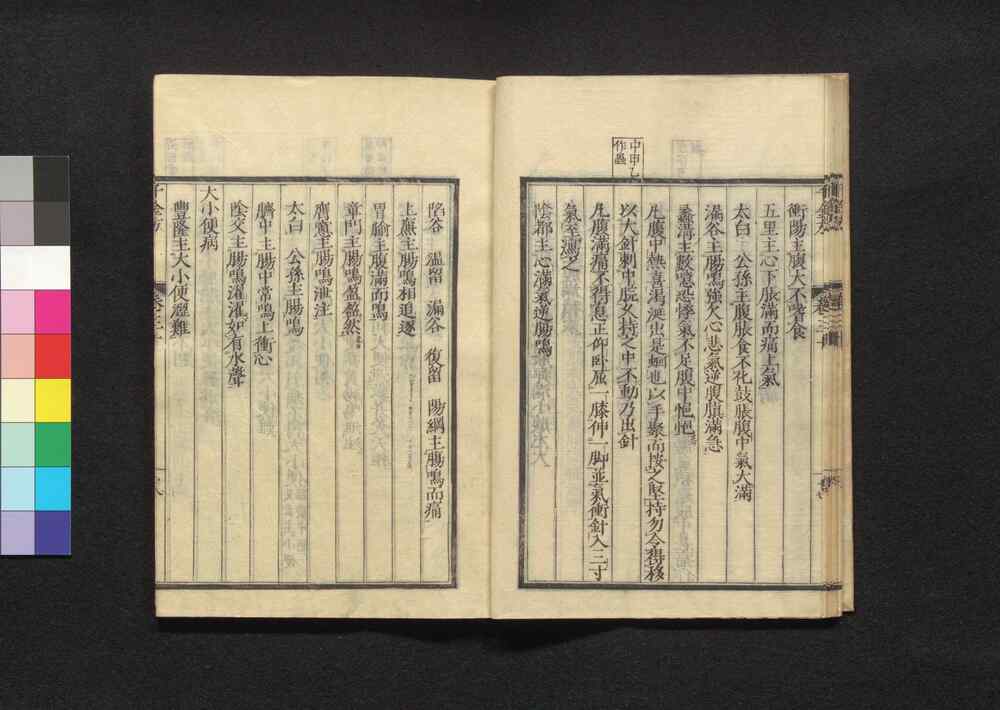 中甲乙
作蟲
衝陽主腹大不嗜食
五里主心下脹滿而痛上氣
太白 公孫主腹脹食不化鼓脹腹中氣大滿
漏谷主腸鳴強欠心悲氣逆腹䐜滿急
蠡溝主數噫恐悸氣不足腹中悒悒
凡腹中熱喜渴涎出是蛔也以手聚而按之堅持勿令得移
以大鍼刺中脘久持之中不動乃出針
凡腹滿痛不得息正仰卧屈一膝伸一脚並氣衝針入三寸
氣至瀉之
陰都主心滿氣逆腸鳴
陷谷 溫留 漏谷 復留 陽綱主腸鳴而痛
上廉主腸鳴相追逐
胃腧主腹滿而鳴
章門主腸鳴盈盈然
膺窻主腸鳴泄注
太白 公孫主腸鳴
臍中主腸中常鳴上衝心
陰交主腸鳴濯濯如有水聲
大小便病
豐隆主大小便澀難